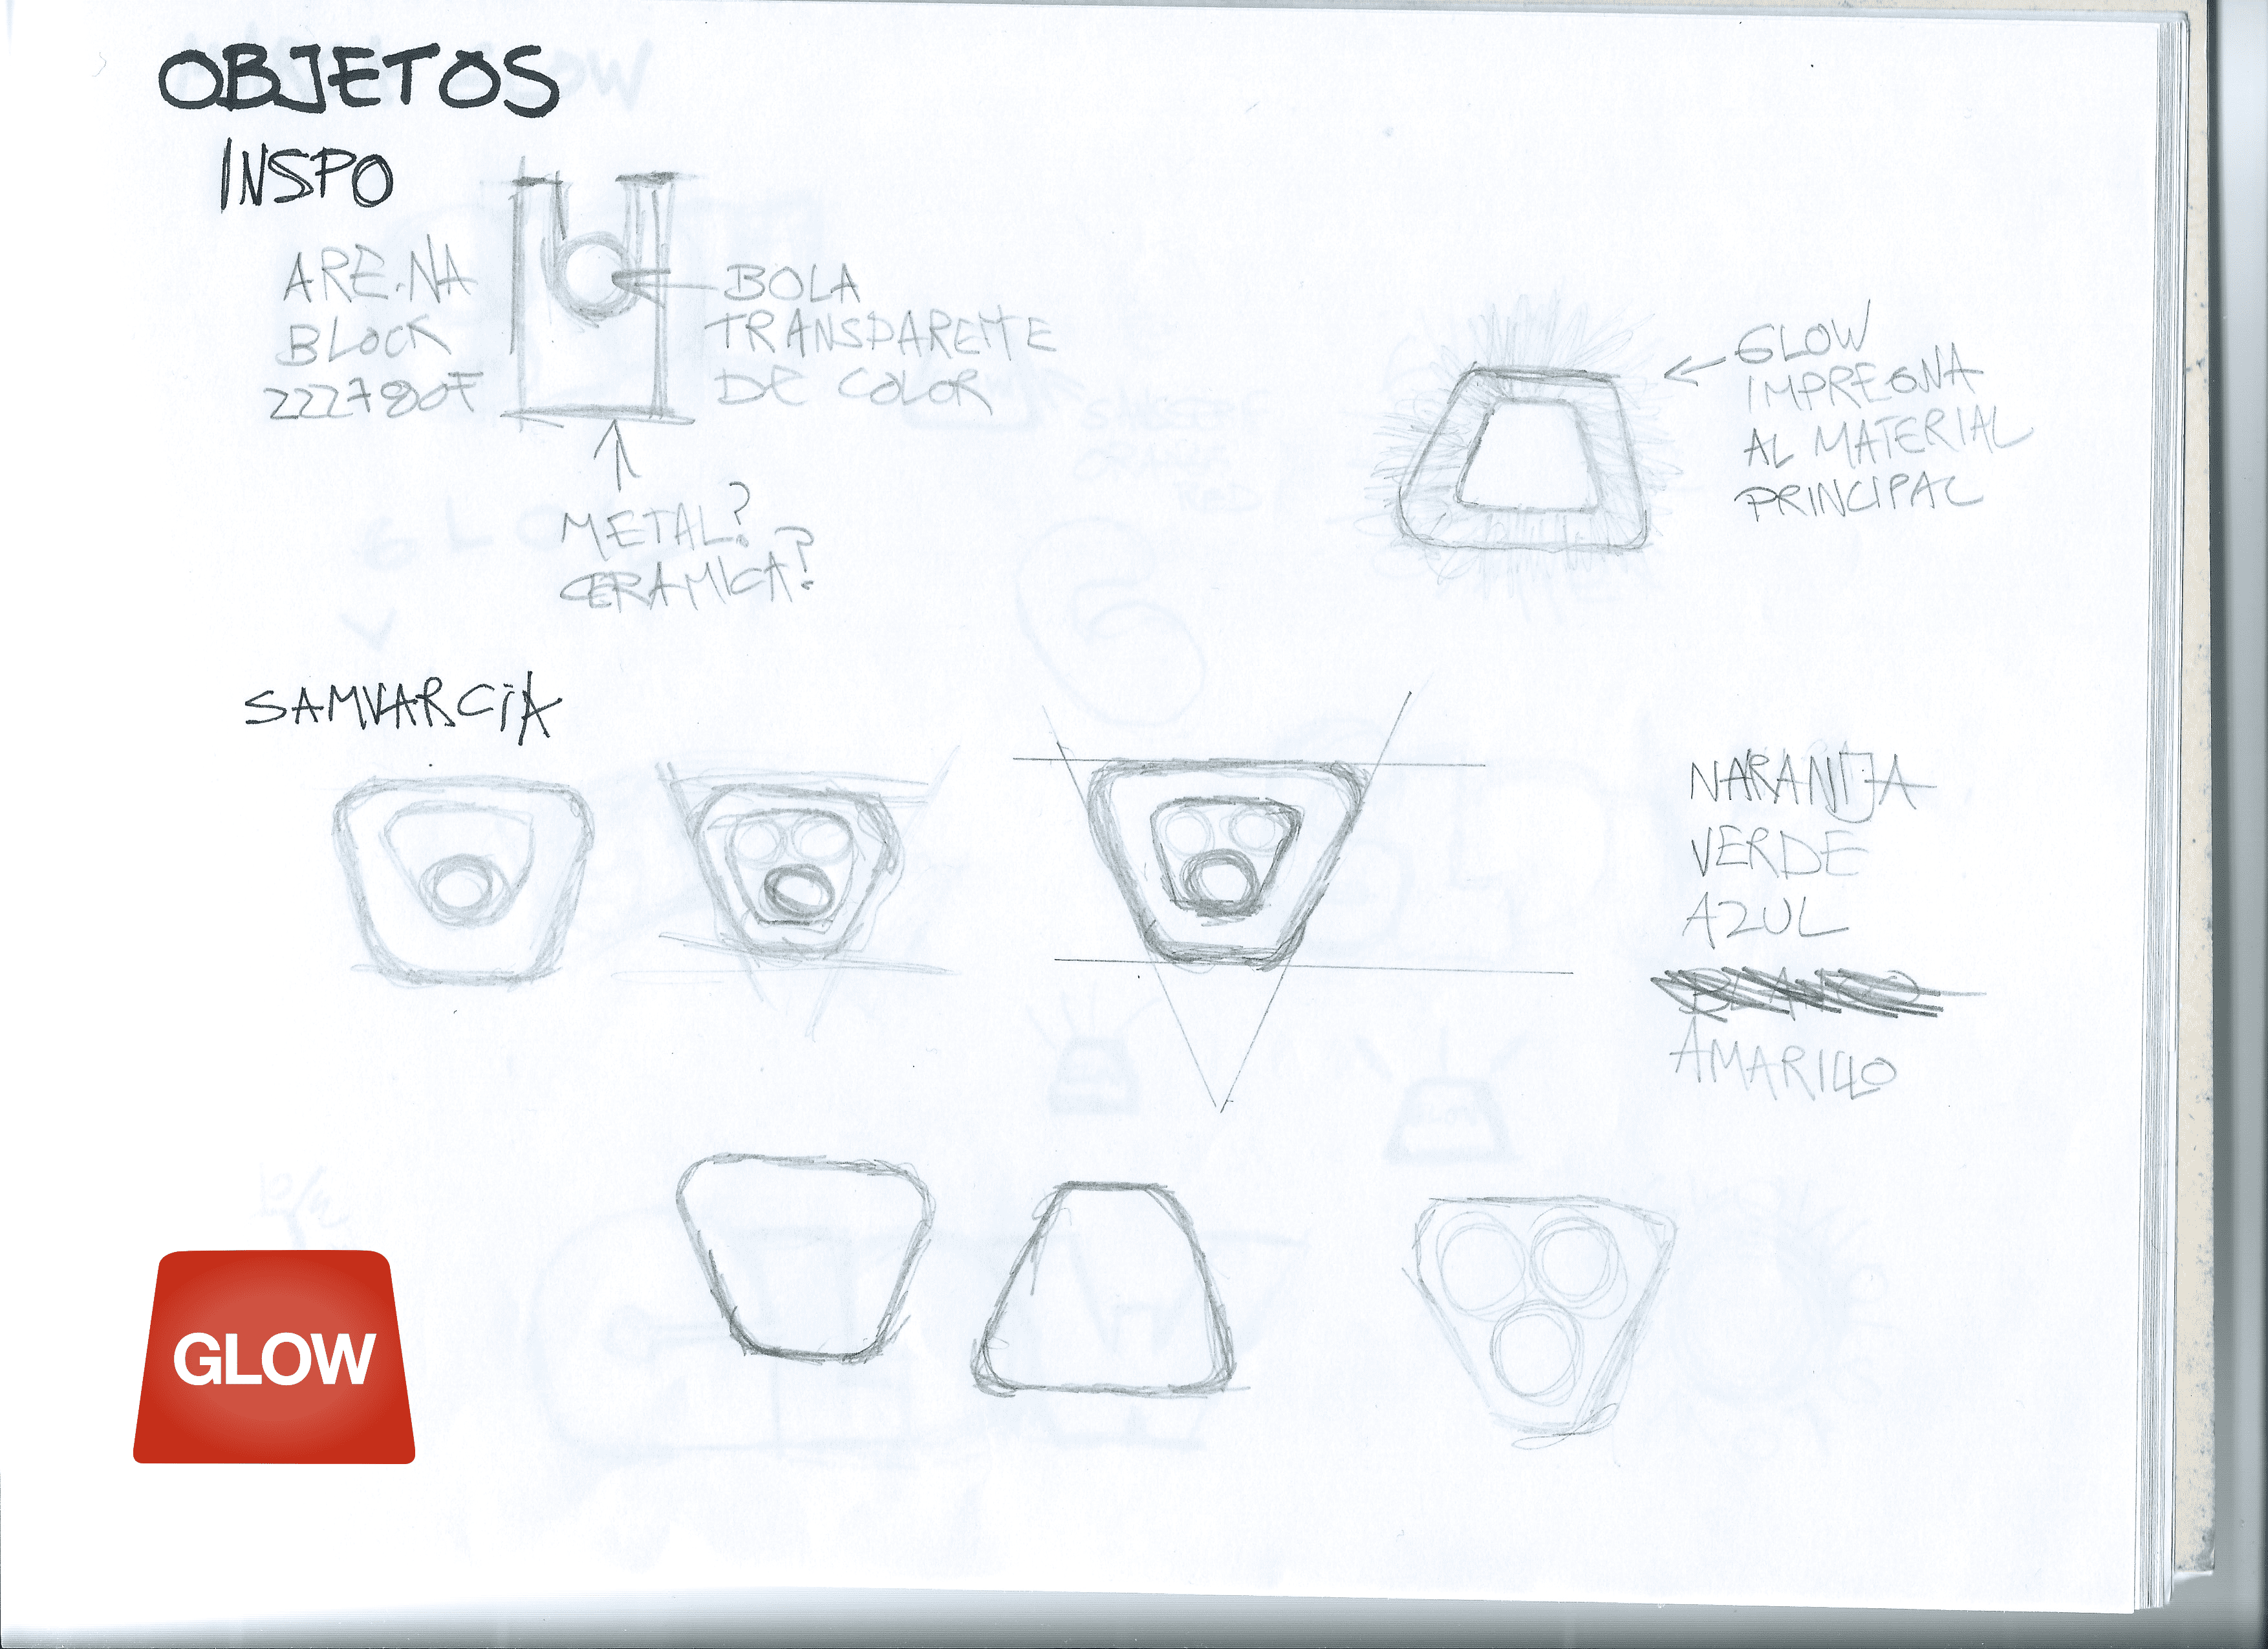 OBJETOS
INSPO
ARE.NA
BLOCK
22278807
BOLA
TRANSPARETE
DE COLOR
METAL?
CERAMICA?
GLOW
IMPREGNA
AL MATERIAL
PRINCIPAL
SAMVARCIA
NARANJA
VERDE
AZUL
AMARILLO
GLOW